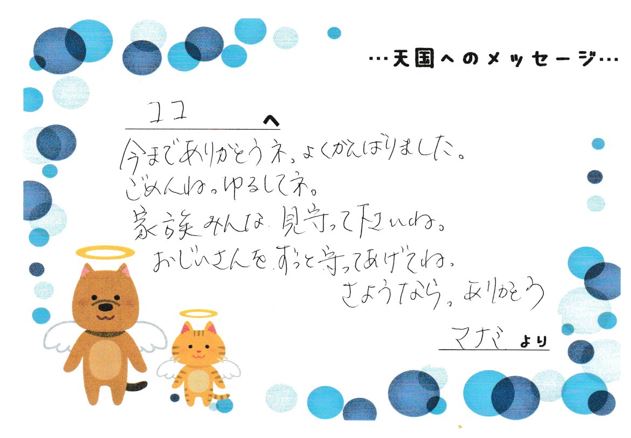 …天国へのメッセージ…
ココ へ
今までありがとうネ。よくがんばりました。
ごめんね。ゆるしてネ。
家族みんな 見守って下さいね。
おじいさんを ずっと守ってあげてね。
さようなら。ありがとう
マナミ より